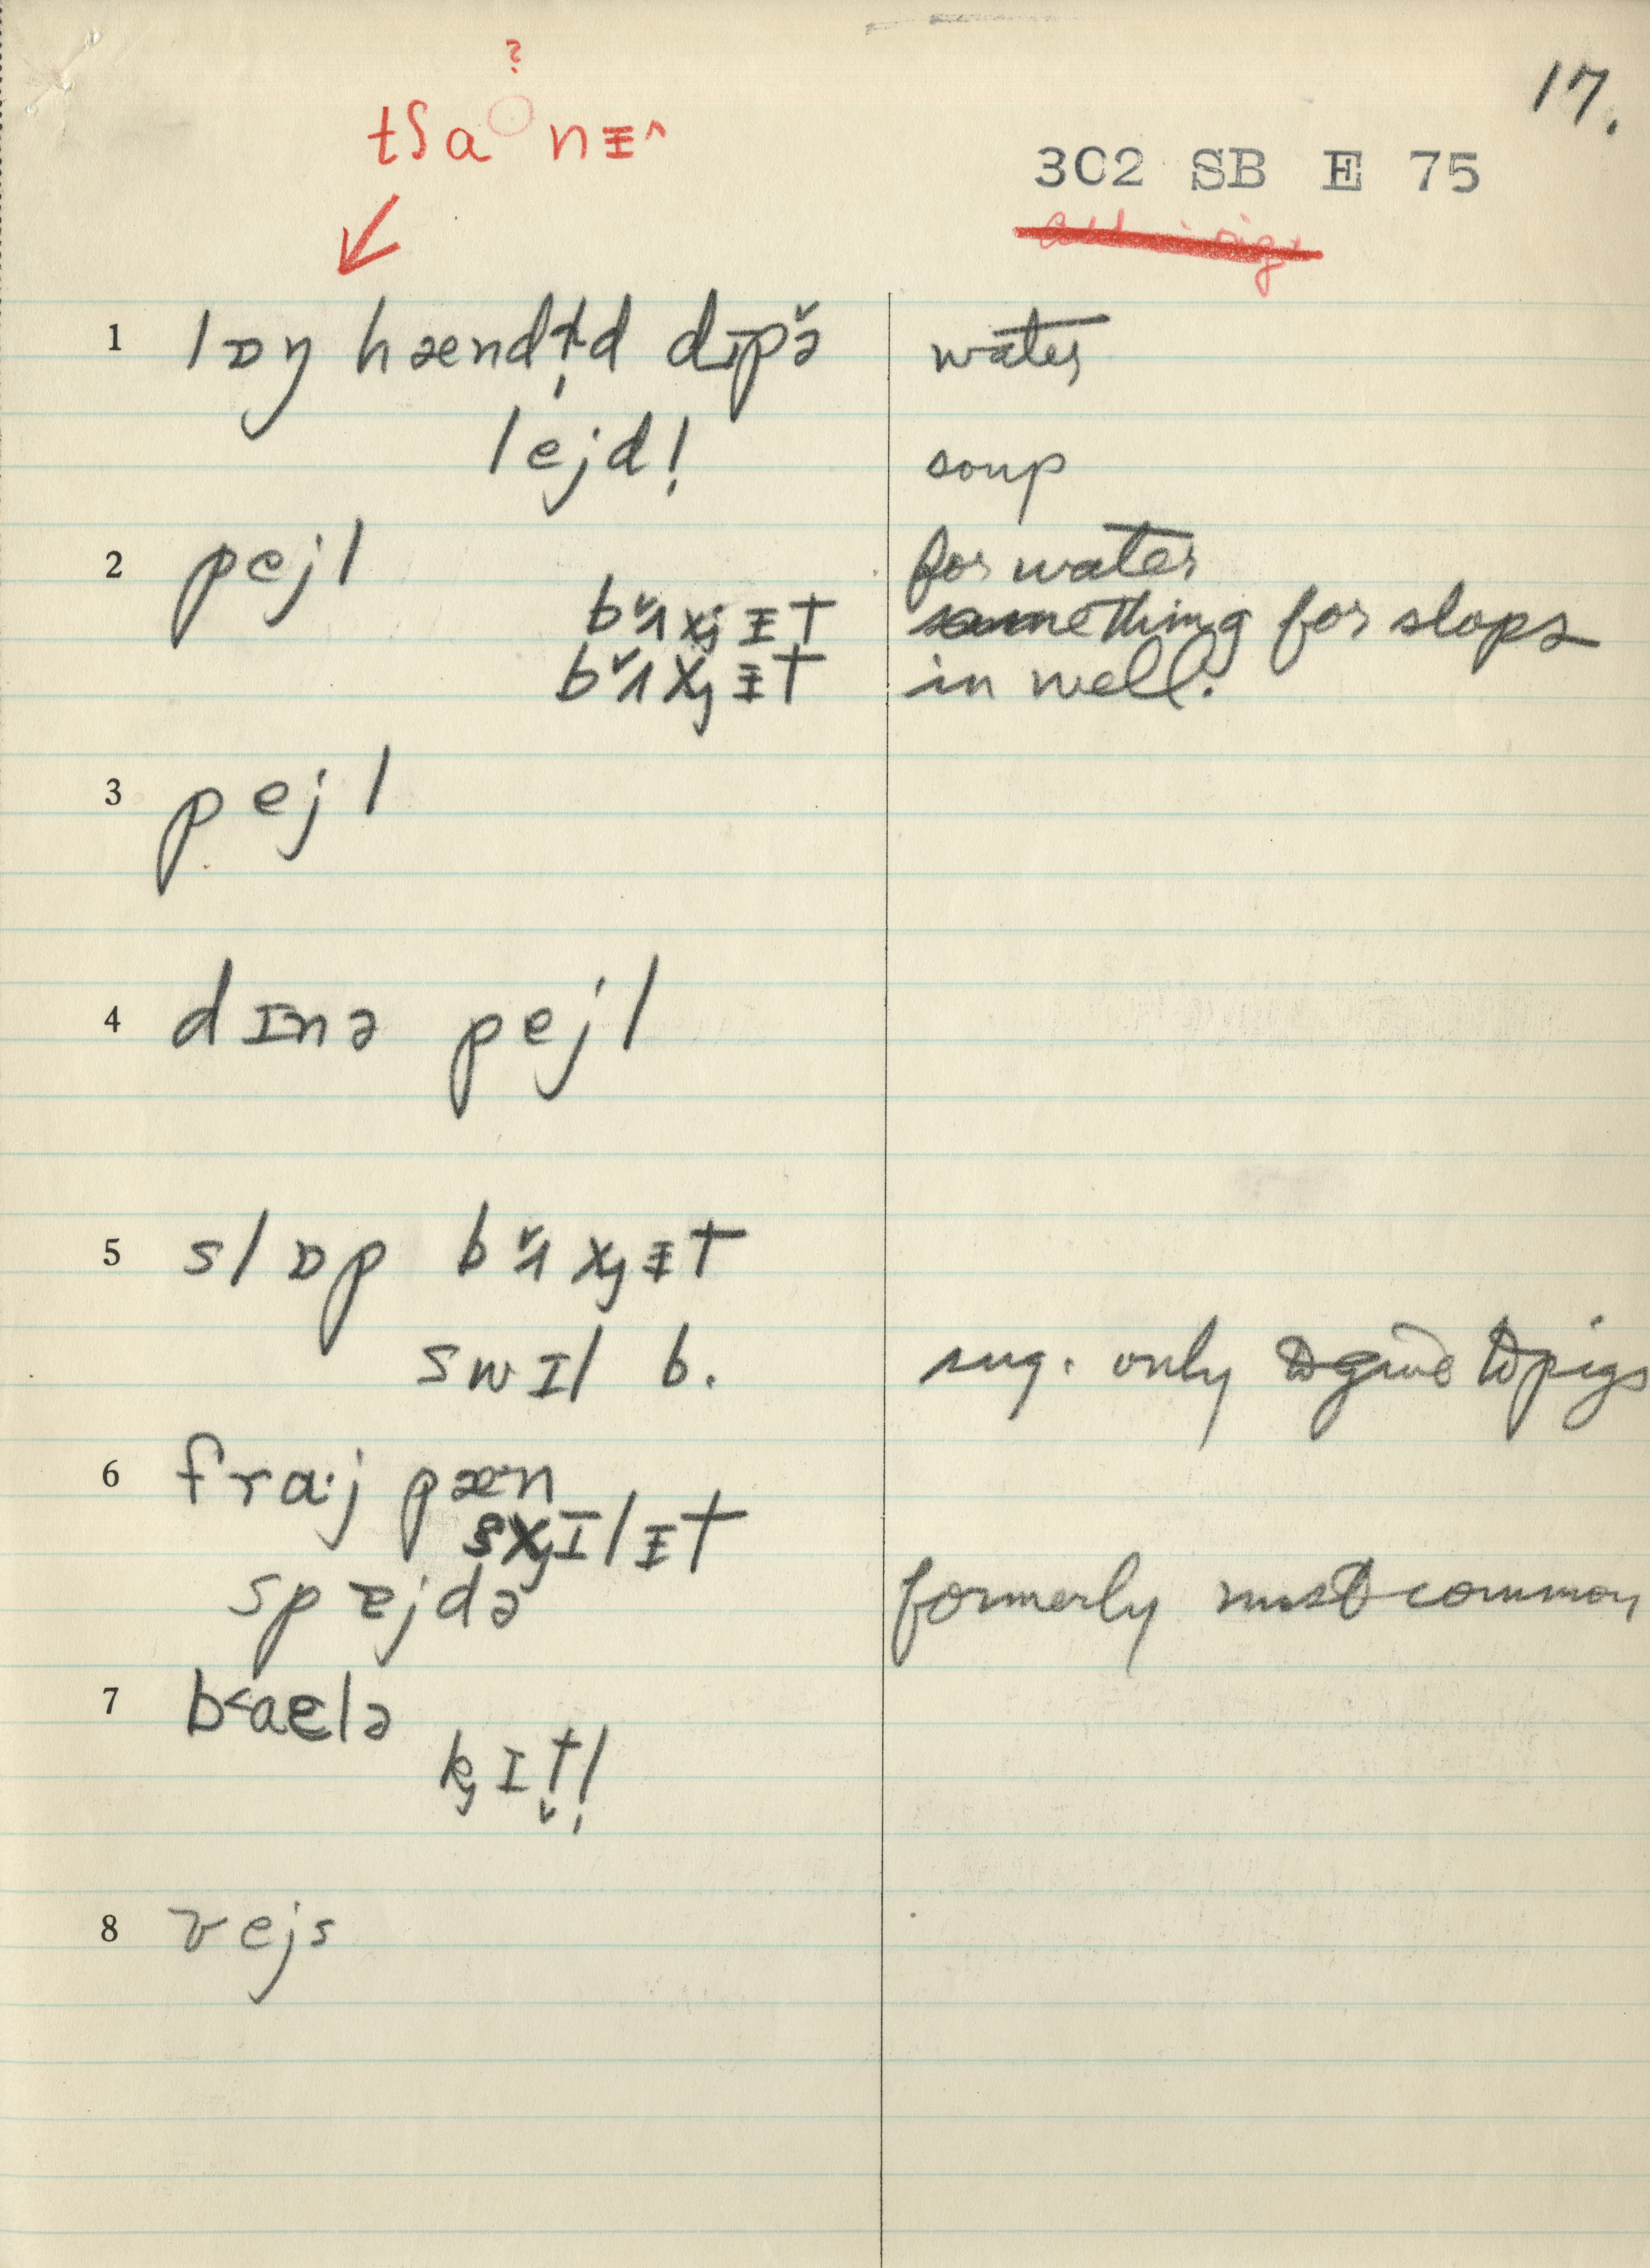 ?
17.
tʃa nᵻ^
302 SB E 75
1 lɒŋ hændḷd dɪpə̌ water
lejdḷ soup
2 pejl for water
bʌ̌kᵻt something for slops
bʌ̌kᵻt in well.
3 pejl
4 dɪnə pejl
5 slɒp bʌ̌kᵻt
swɪl b. sug. only to give to pigs
6 fra·j pæn
skɪlᵻt
spejdə formerly most common
7 b<aɛlə
kɪt̬ḷ
8 vejs